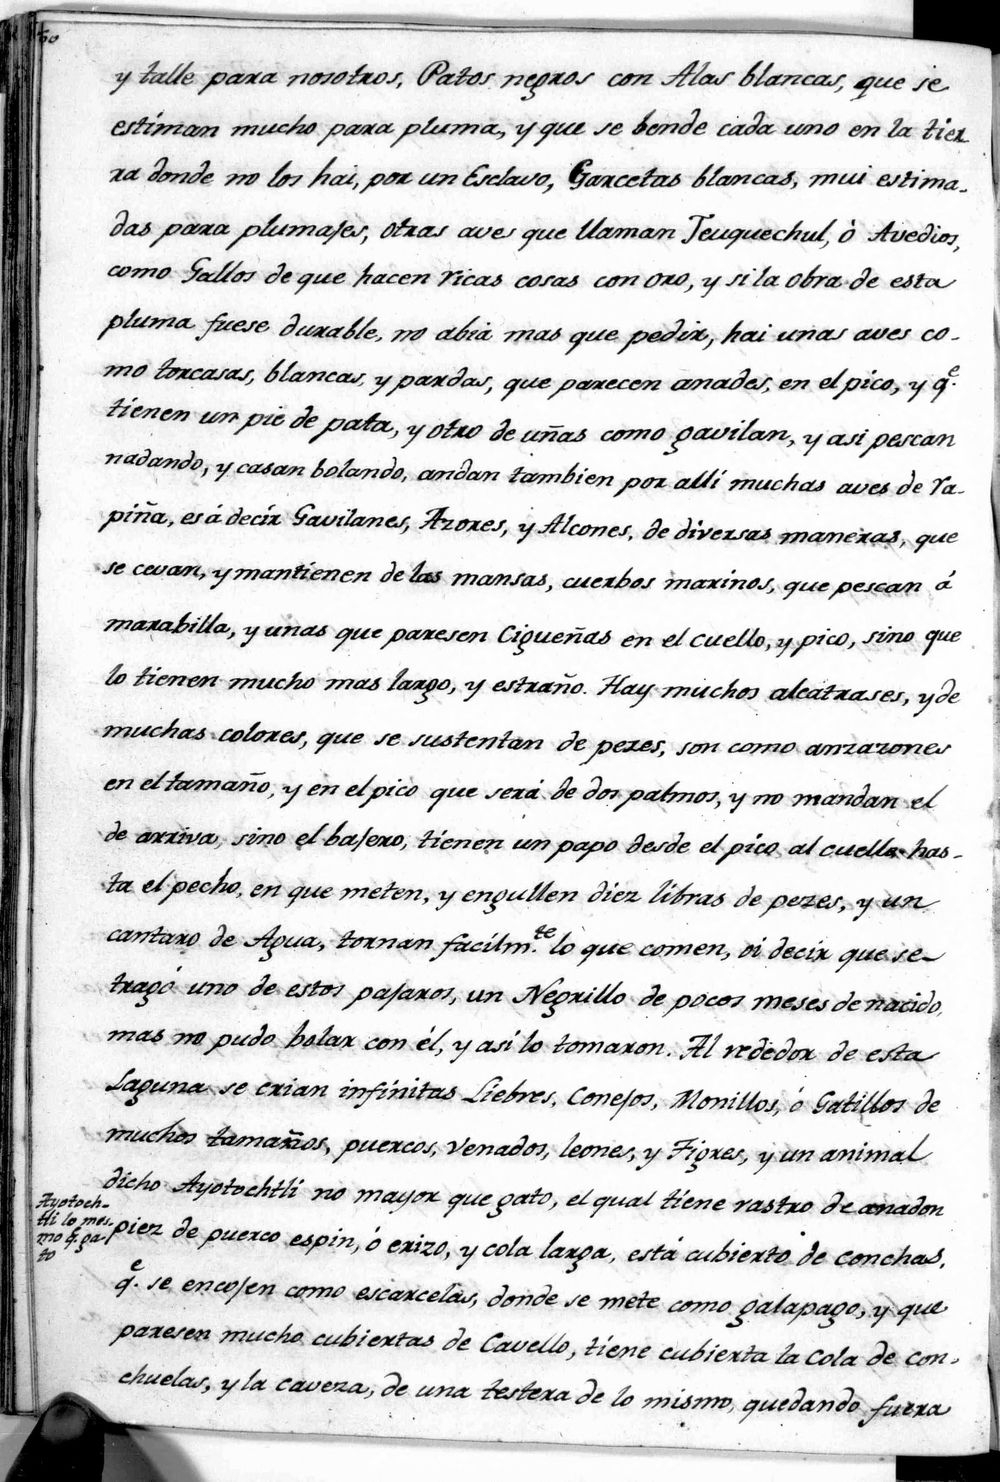 y talle para nosotros, Patos negros con Alas blancas, que se
estiman mucho para pluma, y que se bende cada uno en la tier
ra donde no los hai, por un Esclavo, Garcetas blancas, mui estima-
das para plumajes, otras aves que llaman Teuquechul, ò Avedios,
como Gallos de que hacen ricas cosas con oro, y si la obra de esta
pluma fuese durable, no abia mas que pedir, hai unas aves co-
mo torcasas, blancas, y pardas, que parecen anades, en el pico, y q.e
tienen un pie de pata, y otro de uñas como gavilan, y asi pescan
nadando, y casan bolando, andan tambien por allí muchas aves de ra-
piña, es á decir Gavilanes, Azores, y Alcones, de diversas maneras, que
se cevan, y mantienen de las mansas, cuerbos marinos, que pescan á
marabilla, y unas que paresen Cigueñas en el cuello, y pico, sino que
lo tienen mucho mas largo, y estraño. Hay muchos alcatrases, y de
muchas colores, que se sustentan de pezes, son como anzazones
en el tamaño, y en el pico que será de dos palmos, y no mandan el
de arriva, sino el bajero, tienen un papo desde el pico al cuello has-
ta el pecho, en que meten, y engullen diez libras de pezes, y un
cantaro de Agua, tornan facilm.te lo que comen, oi decir que se
tragó uno de estos pajaros, un Negrillo de pocos meses de nacido,
mas no pudo bolar con él, y asi lo tomaron. Al rededor de esta
Laguna se crian infinitas Liebres, Conejos, Monillos, ó Gatillos de
muchos tamaños, puercos, venados, leones, y Tigres, y un animal
dicho Ayotochtli no mayor que gato, el qual tiene rastro de anadon
piez de puerco espin, ó erizo, y cola larga, está cubierto de conchas,
q.e se encojen como escarcelas, donde se mete como galapago, y que
paresen mucho cubiertas de Cavello, tiene cubierta la cola de con-
chuelas, y la caveza, de una testera de lo mismo, quedando fuera
Ayotoch-
tli lo mes-
mo q. ga-
to